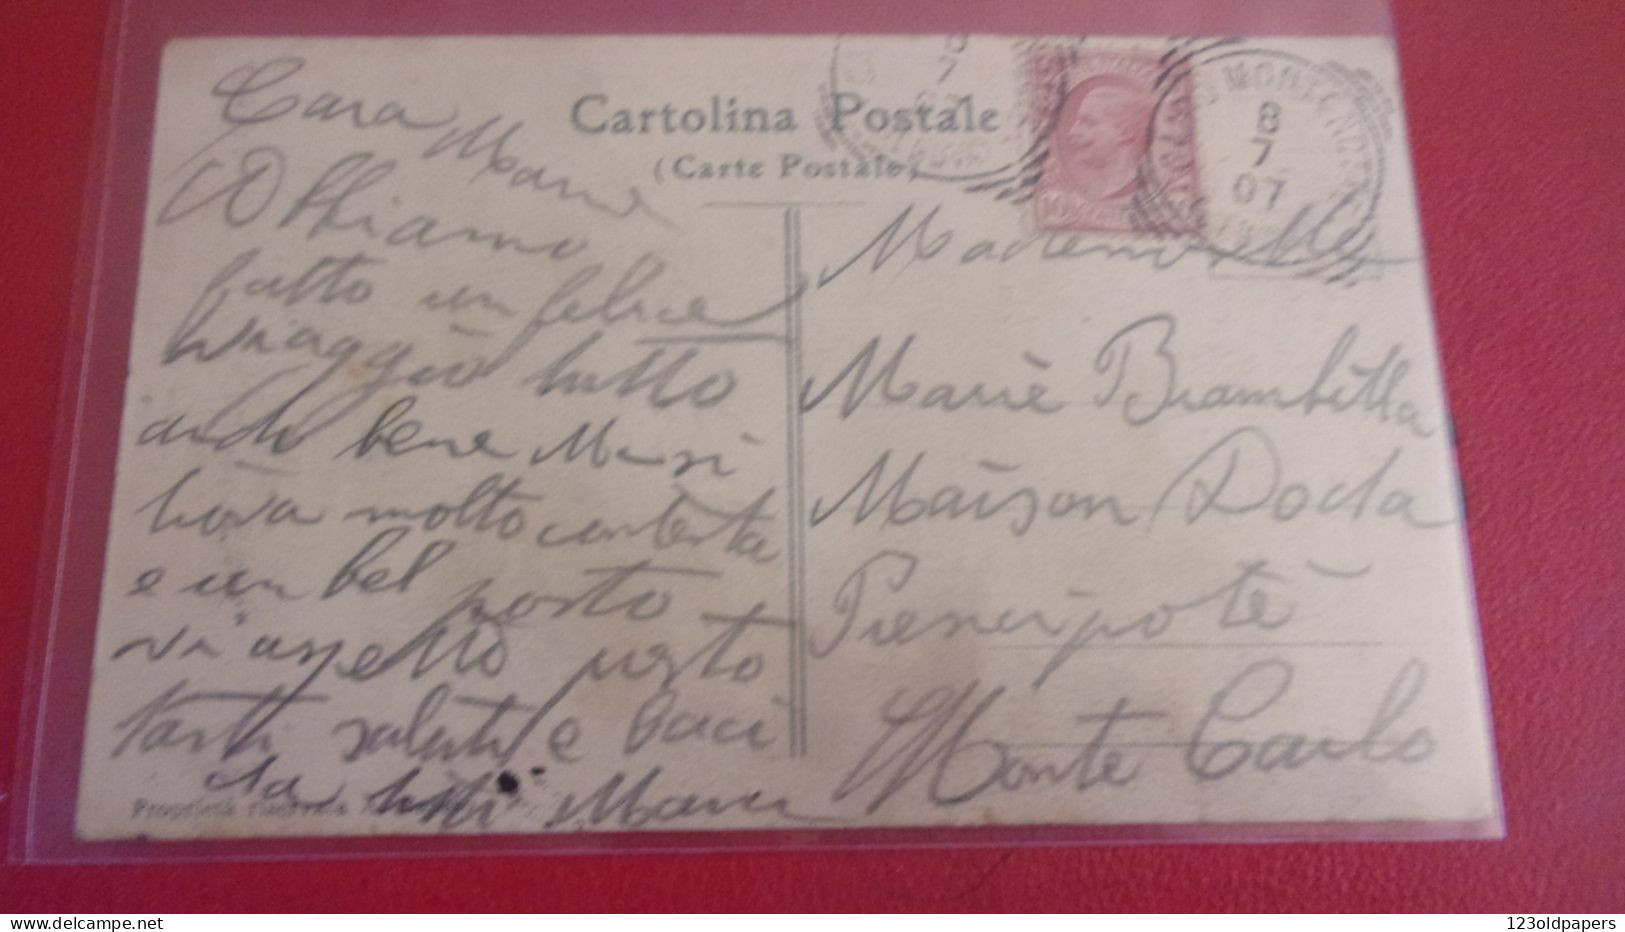 Cartolina Postale
(Carte Postale)
8
7
07
Cara Marie
Abbiamo
fatto un felice
viaggio tutto
andò bene Mi si
trova molto contenta
e un bel posto
vi aspetto presto
tanti saluti e baci
da tutti Maria
Mademoiselle
Marie Brambilla
Maison Doda
Prencipote
Monte Carlo
Proprietà riservata
123oldpapers